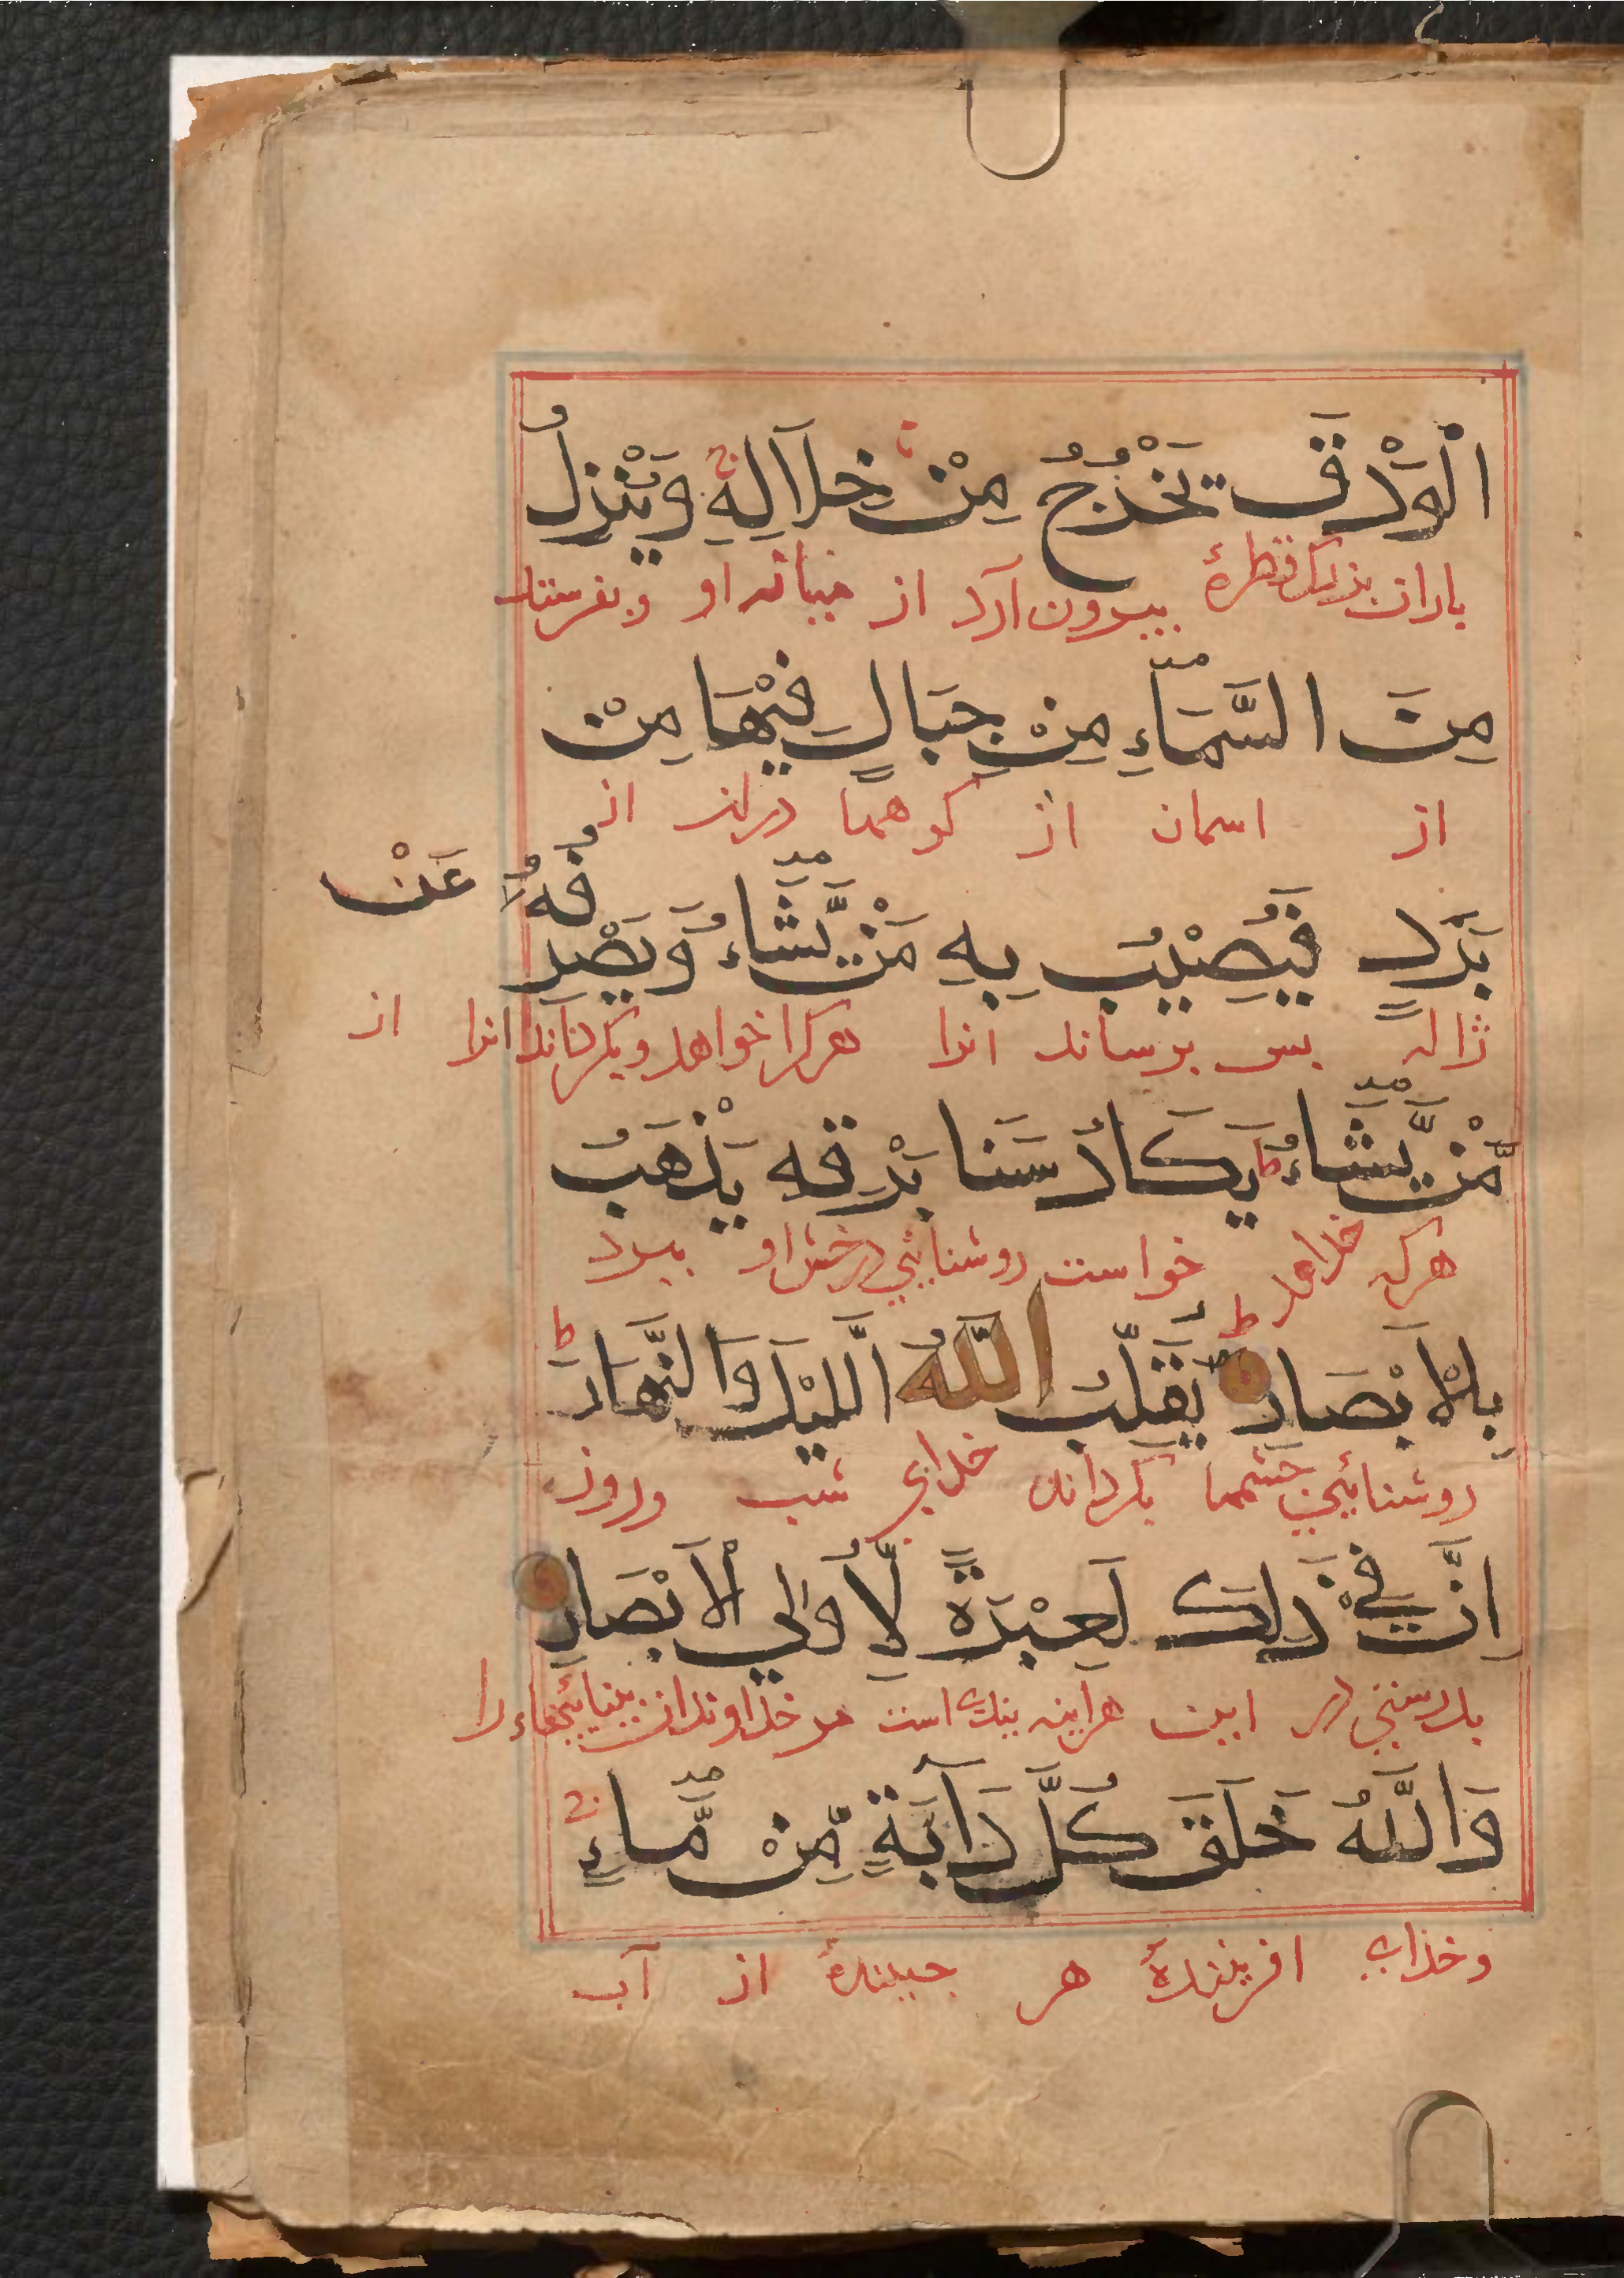 الْوَدْقَ يَخْرُجُ مِنْ خِلَالِهِ وَيُنَزِلُ
باران بزرک قطرهٔ بیرون آرد از میانه او و بفرستد
مِنَ السَّمَاءِ مِنْ جِبَالٍ فِيْهَا مِنْ
از اسمان از کوهها دران از
بَرَدٍ فَيُصِيْبُ بِهِ مَنْ يَّشَاءُ وَيَصْرِفُهُ عَنْ
ژاله بس برساند انرا هرکرا خواهد و بکرداند انرا از
مَّنْ يَّشَاءُ ط يَكَادُ سَنَا بَرْقِهِ يَذْهَبُ
هرکه خواهد خواست روشنایٔی درخش او ببرد
بِالْاَبْصَارِ ط يُقَلِّبُ اللّٰهُ الَّليْلَ وَالنَّهَارَ ط
روشنایٔی چشمها بکرداند خدای شب وروز
اِنَّ فِيْ ذٰلِكَ لَعِبْرَةً لِّاُولِي الْاَبْصَارِ
بدرستی در این هراینه بندی است مر خداوندان بینایٔیهاء را
وَاللّٰهُ خَلَقَ كُلَّ دَآبَةٍ مِّنْ مَّاءٍ
وخدای افرینندهٔ هر جنبندهٔ از آب